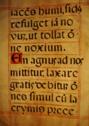 iacens humi, side
refulget iā no
vum, ut tollat o
ne noxium.
En agnus ad nos
mittitur, laxare
gratis debitum: o
nes simul cū la
crymis prece